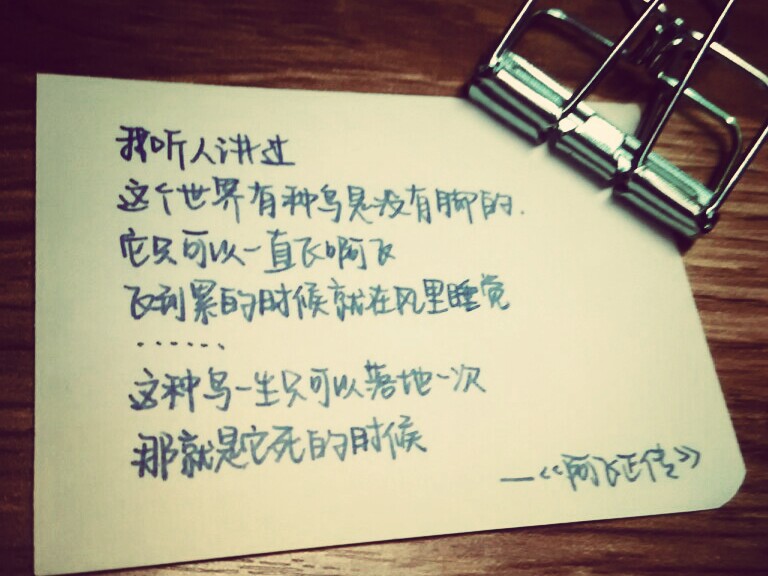 我听人讲过
这个世界有种鸟是没有脚的.
它只可以一直飞啊飞
飞到累的时候就在风里睡觉
......
这种鸟一生只可以落地一次
那就是它死的时候
—《阿飞正传》